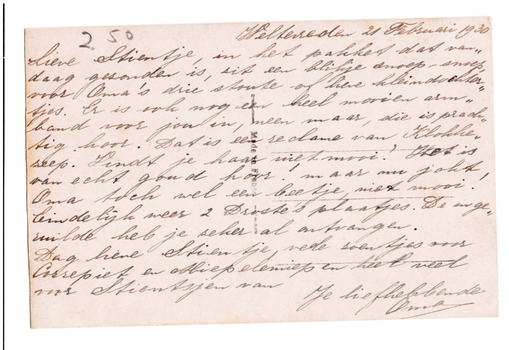 2.50
Weltevreden 21 Februari 1930
Lieve Stientje, in het pakket dat van-
daag gezonden is, zit een blikje snoep
voor Oma's drie stoute of lieve kleindochter-
tjes. Er is ook nog een heel mooien arm-
band voor jou in, neen maar, die is prach-
tig hoor. Dat is een reclame van Klokke-
zeep. Vindt je haar niet mooi? Het is
van echt goud hoor, maar nu jokt,
Oma toch wel een beetje, niet mooi.
Eindelijk weer 2 Droste's plaatjes. De inge-
vulde heb je zeker al ontvangen.
Dag lieve Stientje, vele zoentjes voor
Correpiet en Miepeliniep en heel veel
voor Stientsjen van
Je liefhebbende
Oma
Made in